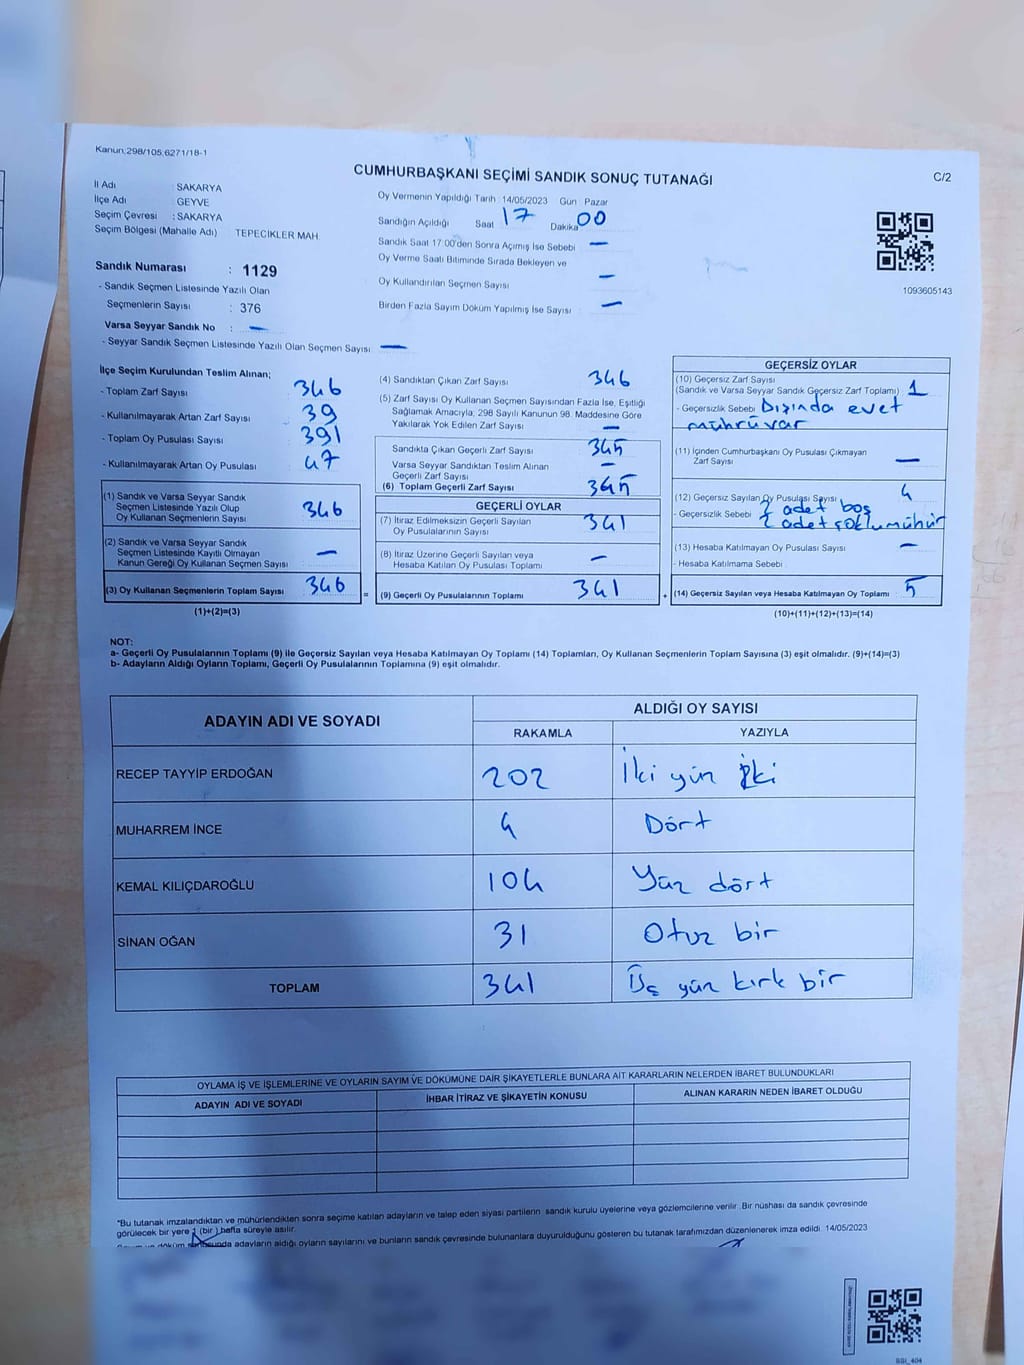 Kanun:298/105,6271/18-1
CUMHURBAŞKANI SEÇİMİ SANDIK SONUÇ TUTANAĞI
C/2
İl Adı : SAKARYA
İlçe Adı : GEYVE
Seçim Çevresi : SAKARYA
Seçim Bölgesi (Mahalle Adı) TEPECİKLER MAH.
Oy Vermenin Yapıldığı Tarih :14/05/2023 Gün : Pazar
Sandığın Açıldığı Saat 17 Dakika 00
Sandık Saat 17:00'den Sonra Açılmış İse Sebebi —
Oy Verme Saati Bitiminde Sırada Bekleyen ve
Oy Kullandırılan Seçmen Sayısı —
Birden Fazla Sayım Döküm Yapılmış İse Sayısı —
1093605143
Sandık Numarası : 1129
- Sandık Seçmen Listesinde Yazılı Olan
Seçmenlerin Sayısı : 376
Varsa Seyyar Sandık No : —
- Seyyar Sandık Seçmen Listesinde Yazılı Olan Seçmen Sayısı —
İlçe Seçim Kurulundan Teslim Alınan;
- Toplam Zarf Sayısı 346
- Kullanılmayarak Artan Zarf Sayısı 39
- Toplam Oy Pusulası Sayısı 391
- Kullanılmayarak Artan Oy Pusulası 47
(1) Sandık ve Varsa Seyyar Sandık
Seçmen Listesinde Yazılı Olup
Oy Kullanan Seçmenlerin Sayısı 346
(2) Sandık ve Varsa Seyyar Sandık
Seçmen Listesinde Kayıtlı Olmayan
Kanun Gereği Oy Kullanan Seçmen Sayısı —
(3) Oy Kullanan Seçmenlerin Toplam Sayısı 346
(1)+(2)=(3)
(4) Sandıktan Çıkan Zarf Sayısı 346
(5) Zarf Sayısı Oy Kullanan Seçmen Sayısından Fazla İse, Eşitliği
Sağlamak Amacıyla, 298 Sayılı Kanunun 98. Maddesine Göre
Yakılarak Yok Edilen Zarf Sayısı —
Sandıkta Çıkan Geçerli Zarf Sayısı 345
Varsa Seyyar Sandıktan Teslim Alınan
Geçerli Zarf Sayısı —
(6) Toplam Geçerli Zarf Sayısı 345
GEÇERLİ OYLAR
(7) İtiraz Edilmeksizin Geçerli Sayılan
Oy Pusulalarının Sayısı 341
(8) İtiraz Üzerine Geçerli Sayılan veya
Hesaba Katılan Oy Pusulası Toplamı —
= (9) Geçerli Oy Pusulalarının Toplamı 341
GEÇERSİZ OYLAR
(10) Geçersiz Zarf Sayısı
(Sandık ve Varsa Seyyar Sandık Geçersiz Zarf Toplamı) 1
- Geçersizlik Sebebi Dışında evet
mührü var
(11) İçinden Cumhurbaşkanı Oy Pusulası Çıkmayan
Zarf Sayısı —
(12) Geçersiz Sayılan Oy Pusulası Sayısı 4
- Geçersizlik Sebebi 2 adet boş
2 adet çoklu mühür
(13) Hesaba Katılmayan Oy Pusulası Sayısı —
- Hesaba Katılmama Sebebi
+ (14) Geçersiz Sayılan veya Hesaba Katılmayan Oy Toplamı 5
(10)+(11)+(12)+(13)=(14)
NOT:
a- Geçerli Oy Pusulalarının Toplamı (9) ile Geçersiz Sayılan veya Hesaba Katılmayan Oy Toplamı (14) Toplamları, Oy Kullanan Seçmenlerin Toplam Sayısına (3) eşit olmalıdır. (9)+(14)=(3)
b- Adayların Aldığı Oyların Toplamı, Geçerli Oy Pusulalarının Toplamına (9) eşit olmalıdır.
ADAYIN ADI VE SOYADI
ALDIĞI OY SAYISI
RAKAMLA YAZIYLA
RECEP TAYYİP ERDOĞAN 202 İki yüz iki
MUHARREM İNCE 4 Dört
KEMAL KILIÇDAROĞLU 104 Yüz dört
SİNAN OĞAN 31 Otuz bir
TOPLAM 341 Üç yüz kırk bir
OYLAMA İŞ VE İŞLEMLERİNE VE OYLARIN SAYIM VE DÖKÜMÜNE DAİR ŞİKAYETLERLE BUNLARA AİT KARARLARIN NELERDEN İBARET BULUNDUKLARI
ADAYIN ADI VE SOYADI İHBAR İTİRAZ VE ŞİKAYETİN KONUSU ALINAN KARARIN NEDEN İBARET OLDUĞU
*Bu tutanak imzalandıktan ve mühürlendikten sonra seçime katılan adayların ve talep eden siyasi partilerin sandık kurulu üyelerine veya gözlemcilerine verilir. Bir nüshası da sandık çevresinde
görülecek bir yere 1 (bir ) hafta süreyle asılır.
döküm adayların aldığı oyların sayılarını ve bunların sandık çevresinde bulunanlara duyurulduğunu gösteren bu tutanak tarafımızdan düzenlenerek imza edildi. 14/05/2023